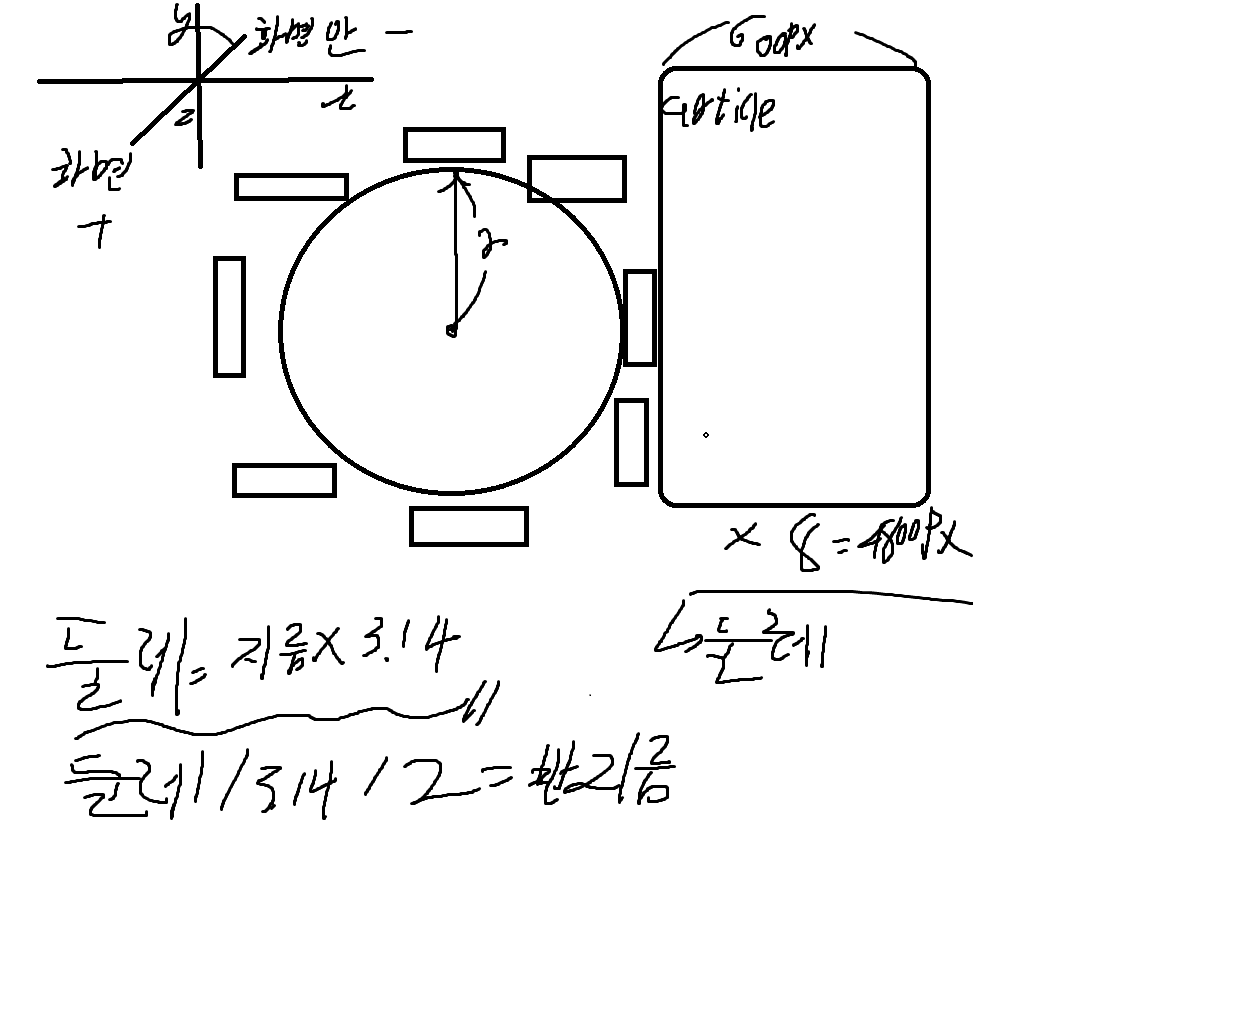 y
화면 안 -
x
z
화면
+
600px
article
r
x 8 = 4800px
둘레
둘레 = 지름 x 3.14
둘레 / 3.14 / 2 = 반지름